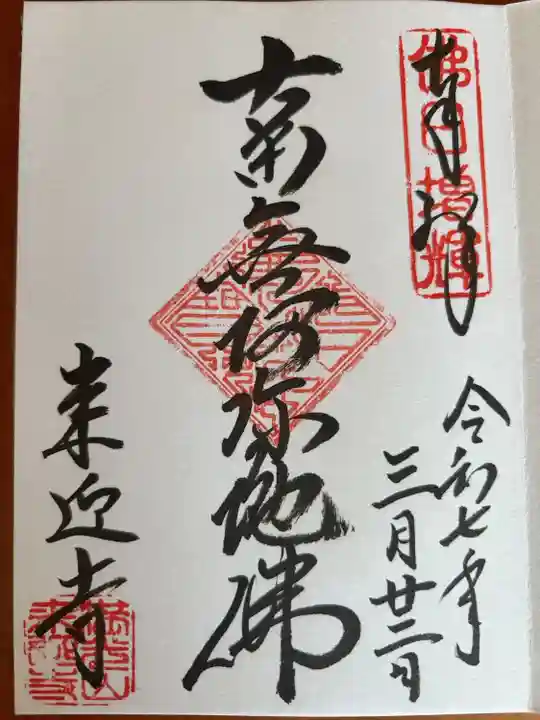 奉拝
佛日増輝
令和七年
三月廿二日
南無阿弥陀佛
来迎寺